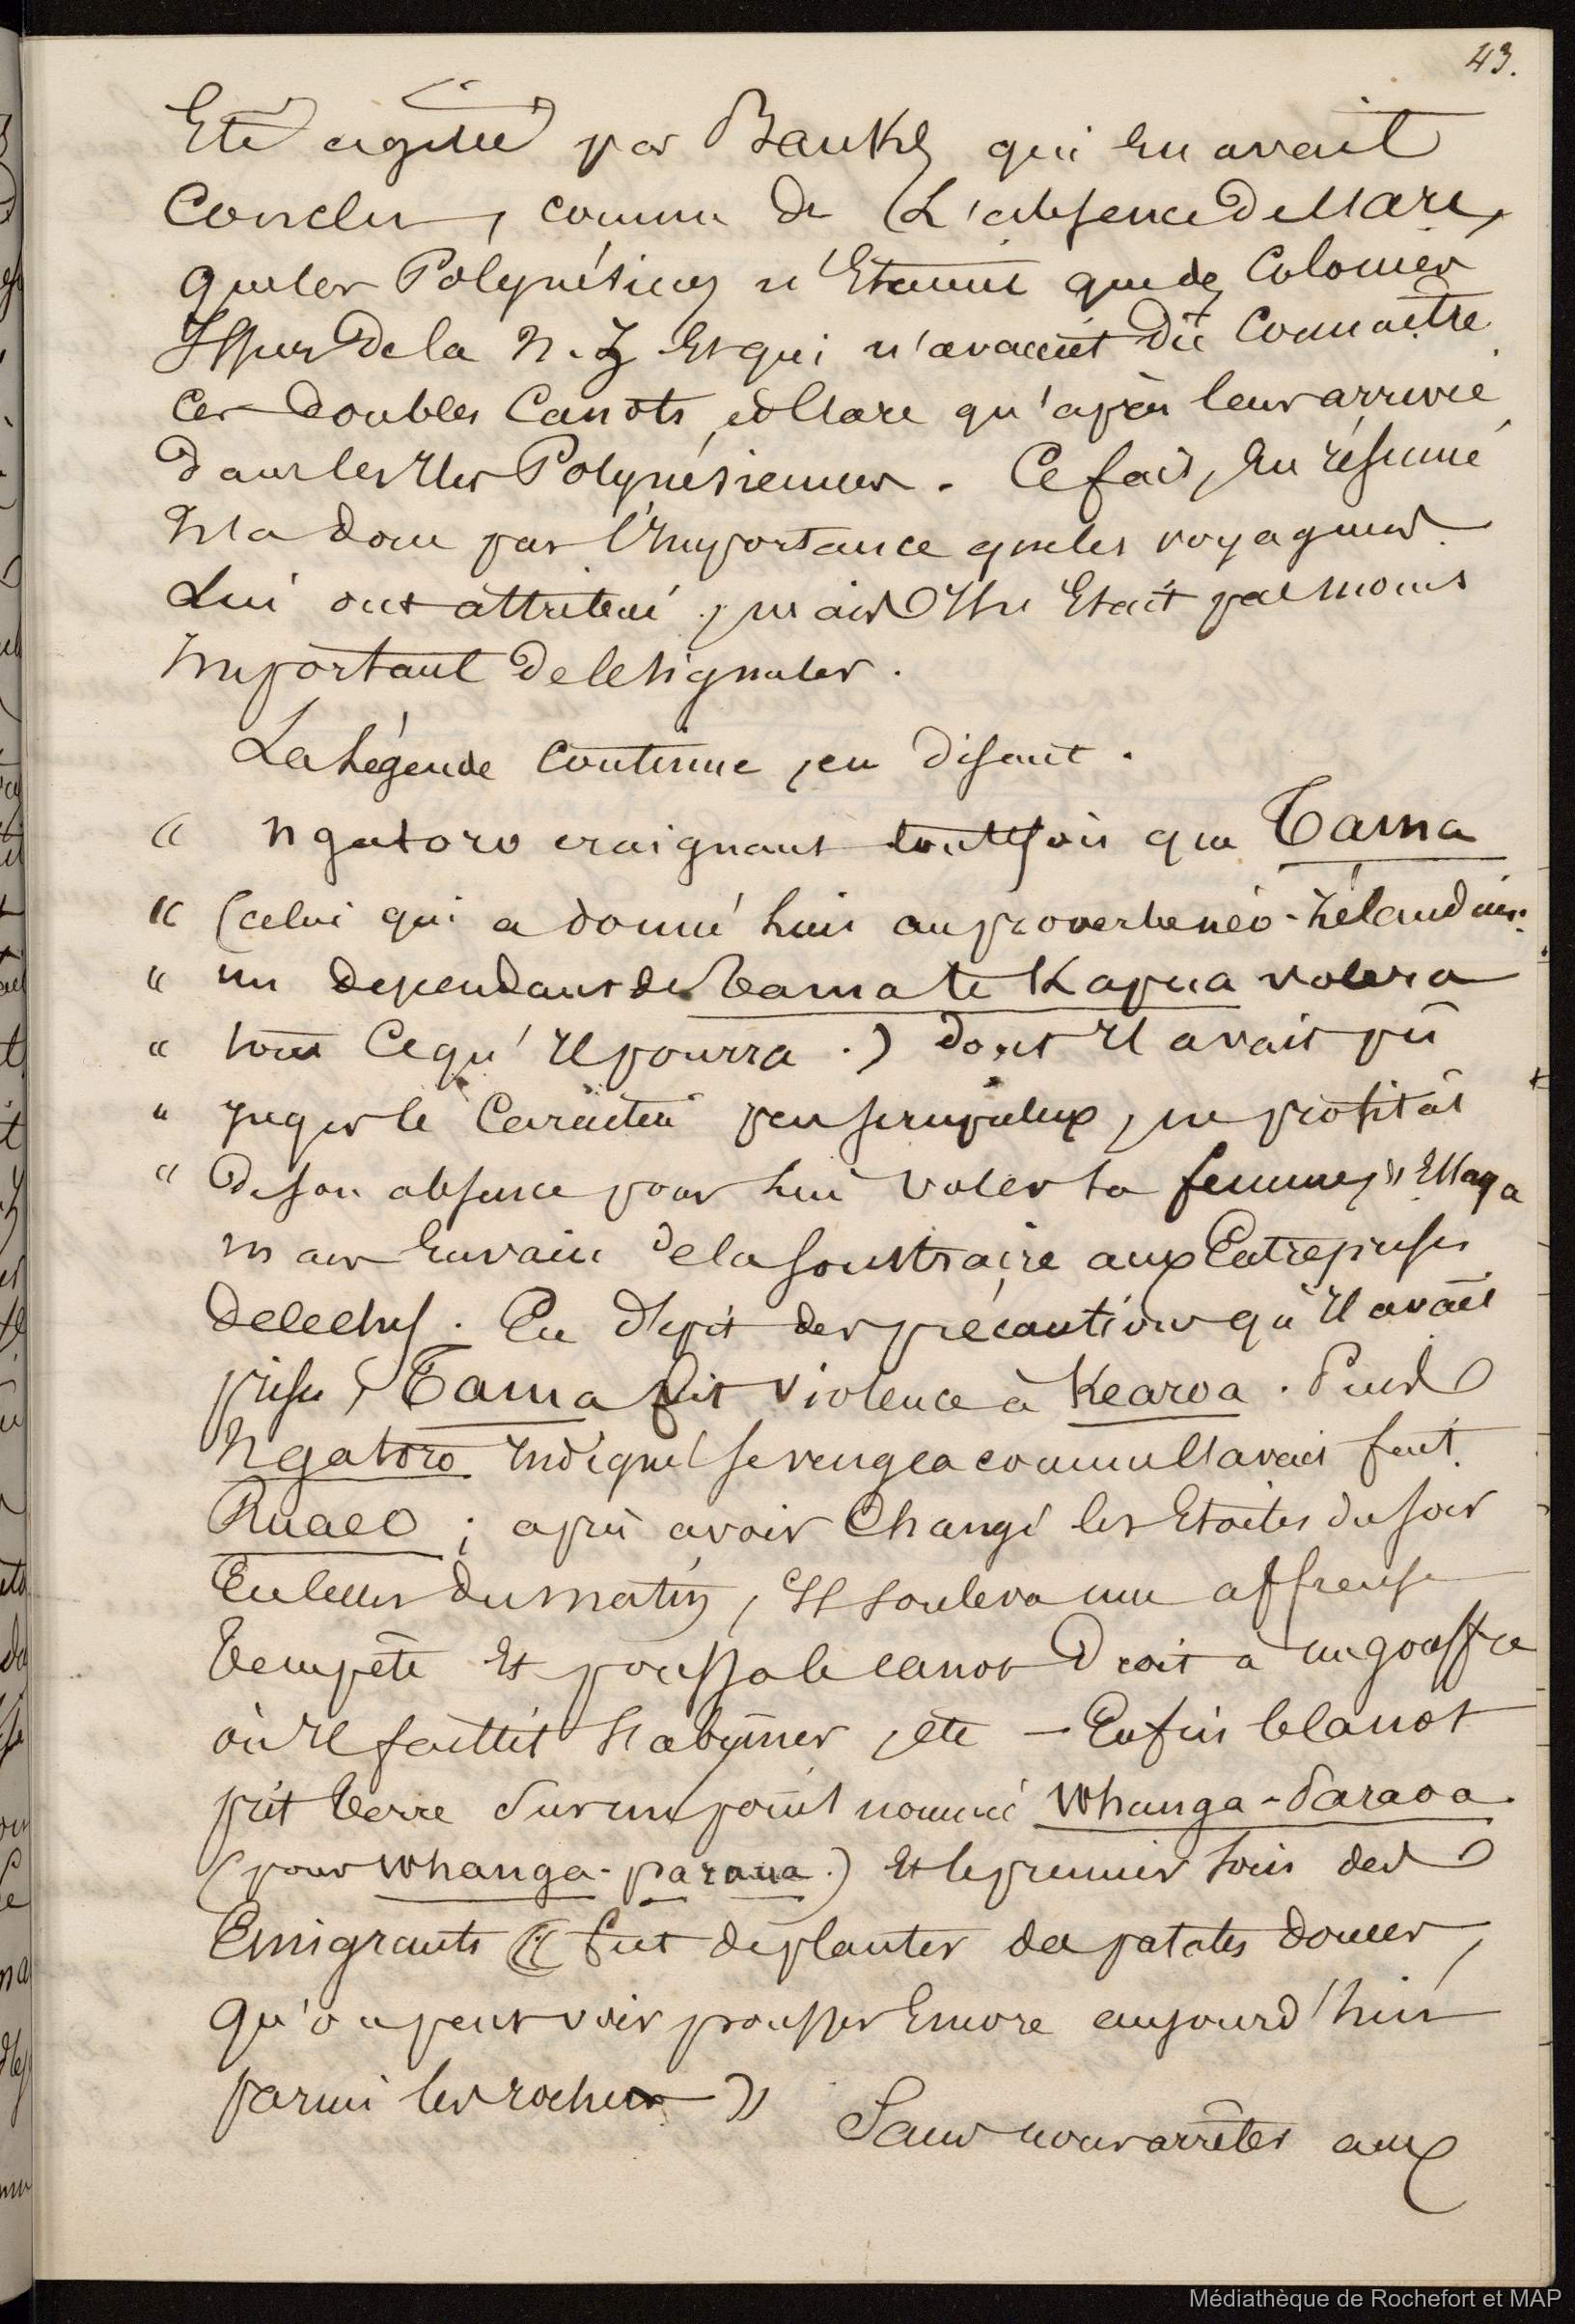 43.
Eté agitée par Banks qui en avait
Conclu, comme de L'absence de Mare,
que les Polynésiens n'Etaient que des Colonies
Issues de la N. Z Et qui n'avaient dû Connaître
Ces doubles Canots et Mare qu'après leur arrivée
dans les Iles Polynésiennes. Ce fait, En résumé
N'a donc pas l'Importance que les voyageurs
Lui ont attribué, mais Il n'Etait pas moins
Important de le signaler.
La Légende Continue, en disant.
« Ngatoro craignant toutefois que Tama
« (celui qui a donné lieu au proverbe néo-Zélandais:
« un dependant de Tama te Kapua volera
« tout Ce qu'Il pourra.) dont Il avait pû
« Juger le Caractère peu scrupuleux, ne profitât
« De son absence pour lui voler sa femme, » Essaya
mais En vain de la soustraire aux Entreprises
de ce chef. En dépit des précautions qu'Il avait
prises, Tama fit violence à Kearoa. Puis
Ngatoro Indigné se vengea comme l'avait fait
Ruaeo ; après avoir Changé les Etoiles du soir
En celles du matin, Il souleva une affreuse
Tempête Et poussa le canot Droit à un gouffre
où Il faillit s'abymer, etc — Enfin le Canot
prit terre sur un point nommé Whanga-Paraoa
(pour Whanga-paraua.) Et le premier soin des
Emigrants « fut de planter des patates douces,
qu'on peut voir pousser Encore aujourd'hui
parmi les rochers »
Sans nous arrêter aux
Médiathèque de Rochefort et MAP